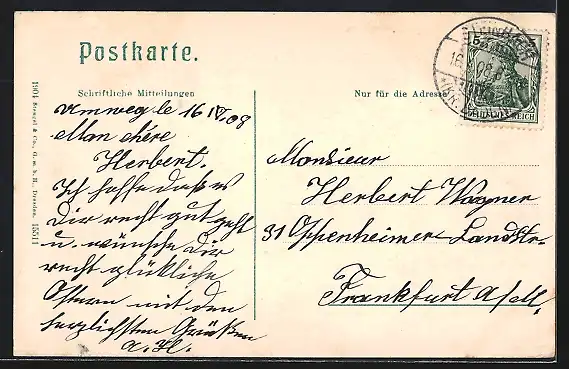 Postkarte.
Schriftliche Mitteilungen
Nur für die Adresse
le 16 IV. 08
Mon chère
Herbert.
Ich hoffe daß es
Dir recht gut geht
u. wünsche Dir
recht glückliche
Ostern mit den
herzlichsten Grüßen
a. H.
Monsieur
Herbert Wagner
31 Oppenheimer Landstr.
Frankfurt a/M.
1904 Stengel & Co., G. m. b. H., Dresden. 15511
5
REICH